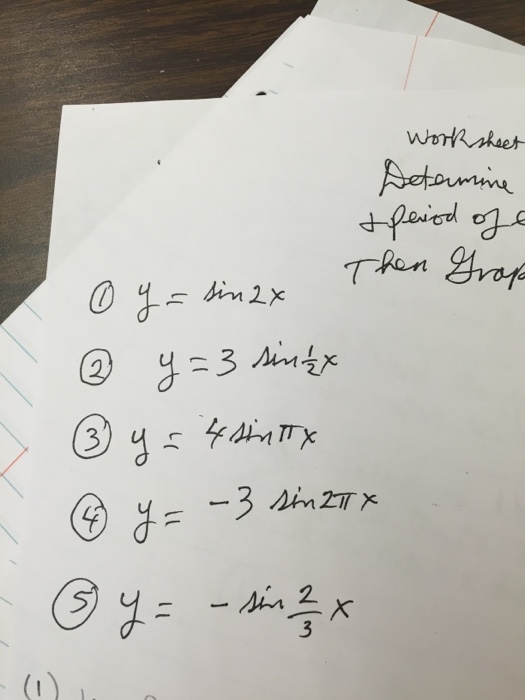 Worksheet
Determine
+ period of
Then Grap
① y = sin 2x
② y = 3 sin ½x
③ y = 4 sin πx
④ y = -3 sin 2πx
⑤ y = - sin 2/3 x
(1)